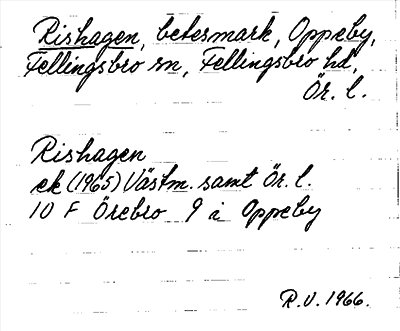 Rishagen, betesmark, Oppeby,
Fellingsbro sn, Fellingsbro hd,
Ör. l.
Rishagen
ek (1965) Västm. samt Ör. l.
10 F Örebro 9 i Oppeby
R.V. 1966.